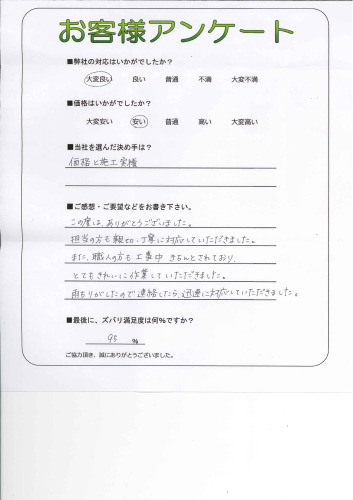 お客様アンケート
■弊社の対応はいかがでしたか？
大変良い 良い 普通 不満 大変不満
■価格はいかがでしたか？
大変安い 安い 普通 高い 大変高い
■当社を選んだ決め手は？
価格と施工実積
■ご感想・ご要望などをお書き下さい。
この度は、ありがとうございました。
担当の方も親切、丁寧に対応していただきました。
また、職人の方も工事中 きちんとされており、
とてもきれいに作業していただきました。
雨もりがしたので連絡したら、迅速に対応していただきました。
■最後に、ズバリ満足度は何％ですか？
95 ％
ご協力頂き、誠にありがとうございました。